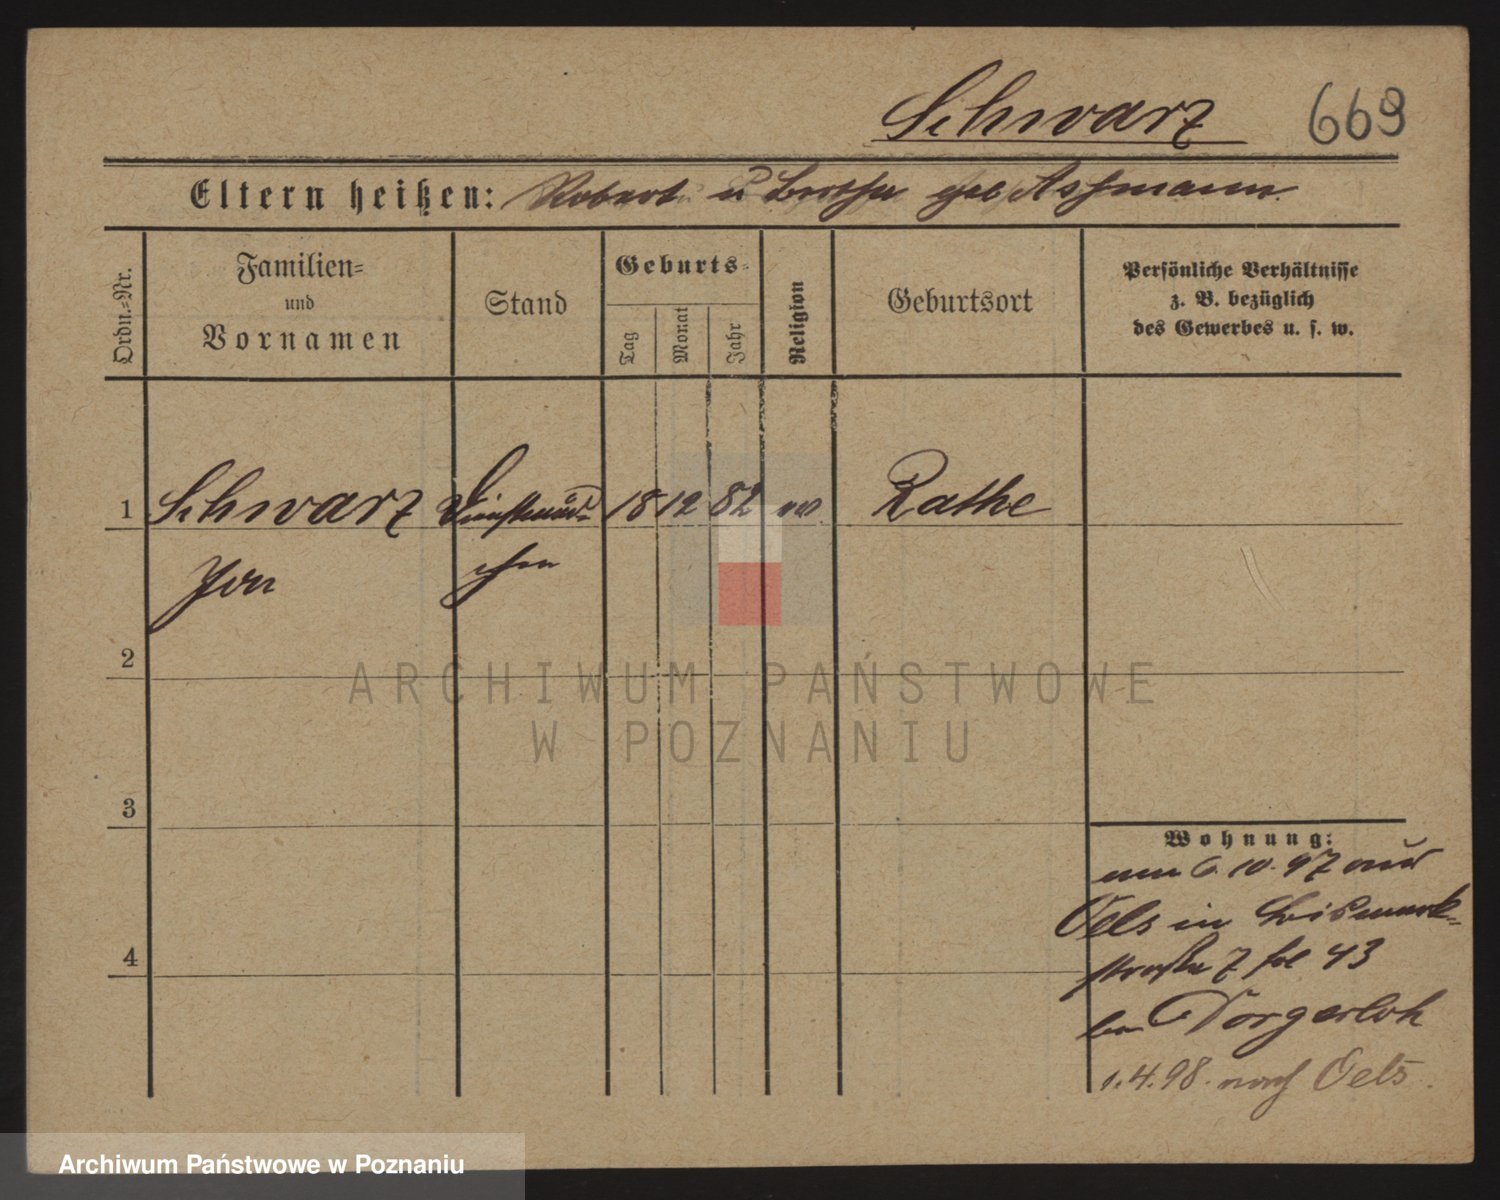 Schwarz 669
Eltern heißen: Robert u Bertha geb Assmann
Ordn.-Nr.
Familien-
und
Vornamen
Stand
Geburts-
Tag
Monat
Jahr
Religion
Geburtsort
Persönliche Verhältnisse
z. B. bezüglich
des Gewerbes u. s. w.
1 Schwarz Dienstmäd- 18 12 82 ev Rathe
chen
2
ARCHIWUM PAŃSTWOWE
W POZNANIU
3
Wohnung:
6.10.97 aus
Oels in Bismark-
straße 7 43
bei Vorgerlok
4
1.4.98. nach Oels.
Archiwum Państwowe w Poznaniu